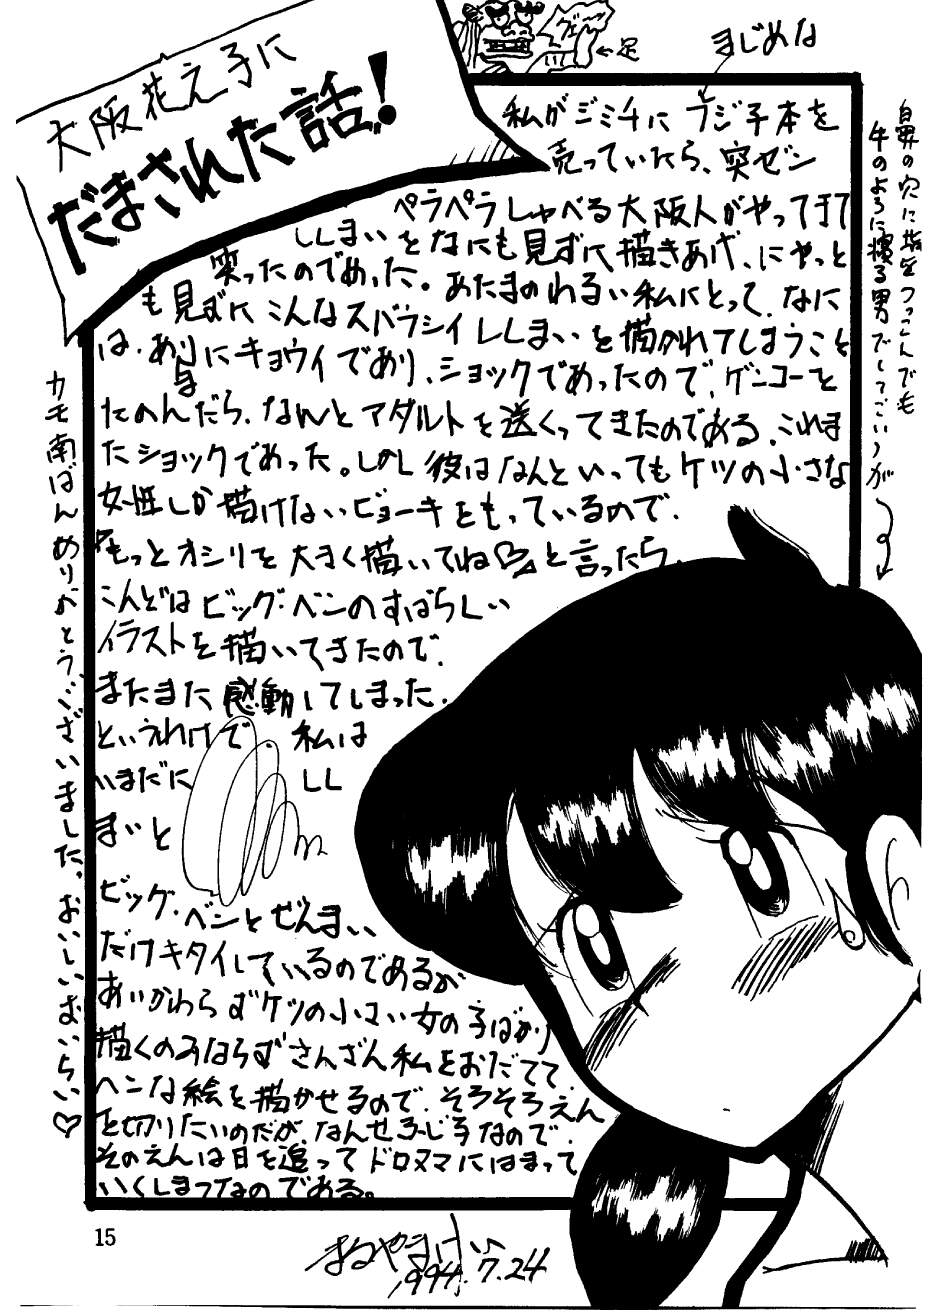 大阪花え子に
だまされた話!
←足
まじめな
私がジミチにフジ子本を
売っていたら、突ゼン
ペラペラしゃべる大阪人がやってきて
ししまいをなにも見ずに描きあげ、にやっと
笑ったのであった。あたまのわるい私にとって、なに
も見ずにこんなスバラシイししまいを描かれてしまうこと
は、ありにキョウイであり、ショックであったので、ゲンコーを
たのんだら、なんとアダルトを送くってきたのである。これま
たショックであった。しかし彼はなんといってもケツの小さな
女性しか描けないビョーキをもっているので、
『もっとオシリを大きく描いてね♡』と言ったら、
こんどはビッグ・ベンのすばらしい
イラストを描いてきたので、
またまた感動してしまった。
というわけで 私は
いまだに しし
まいと
ビッグ・ベンとぜんまい
だけキタイしているのであるが
あいかわらずケツの小さい女の子ばかり
描くのみならずさんざん私をおだてて、
ヘンな絵を描かせるので、そろそろえん
を切りたいのだが、なんせふじ子なので、
そのえんは日を追ってドロヌマにはまって
いくしまつなのである。
鼻の穴に指をつっこんでも
牛のように寝る男でしてごいうが
カモ南ばんありがとうございました。おいしいおいらい♡
15
まるやまけい
1994.7.24